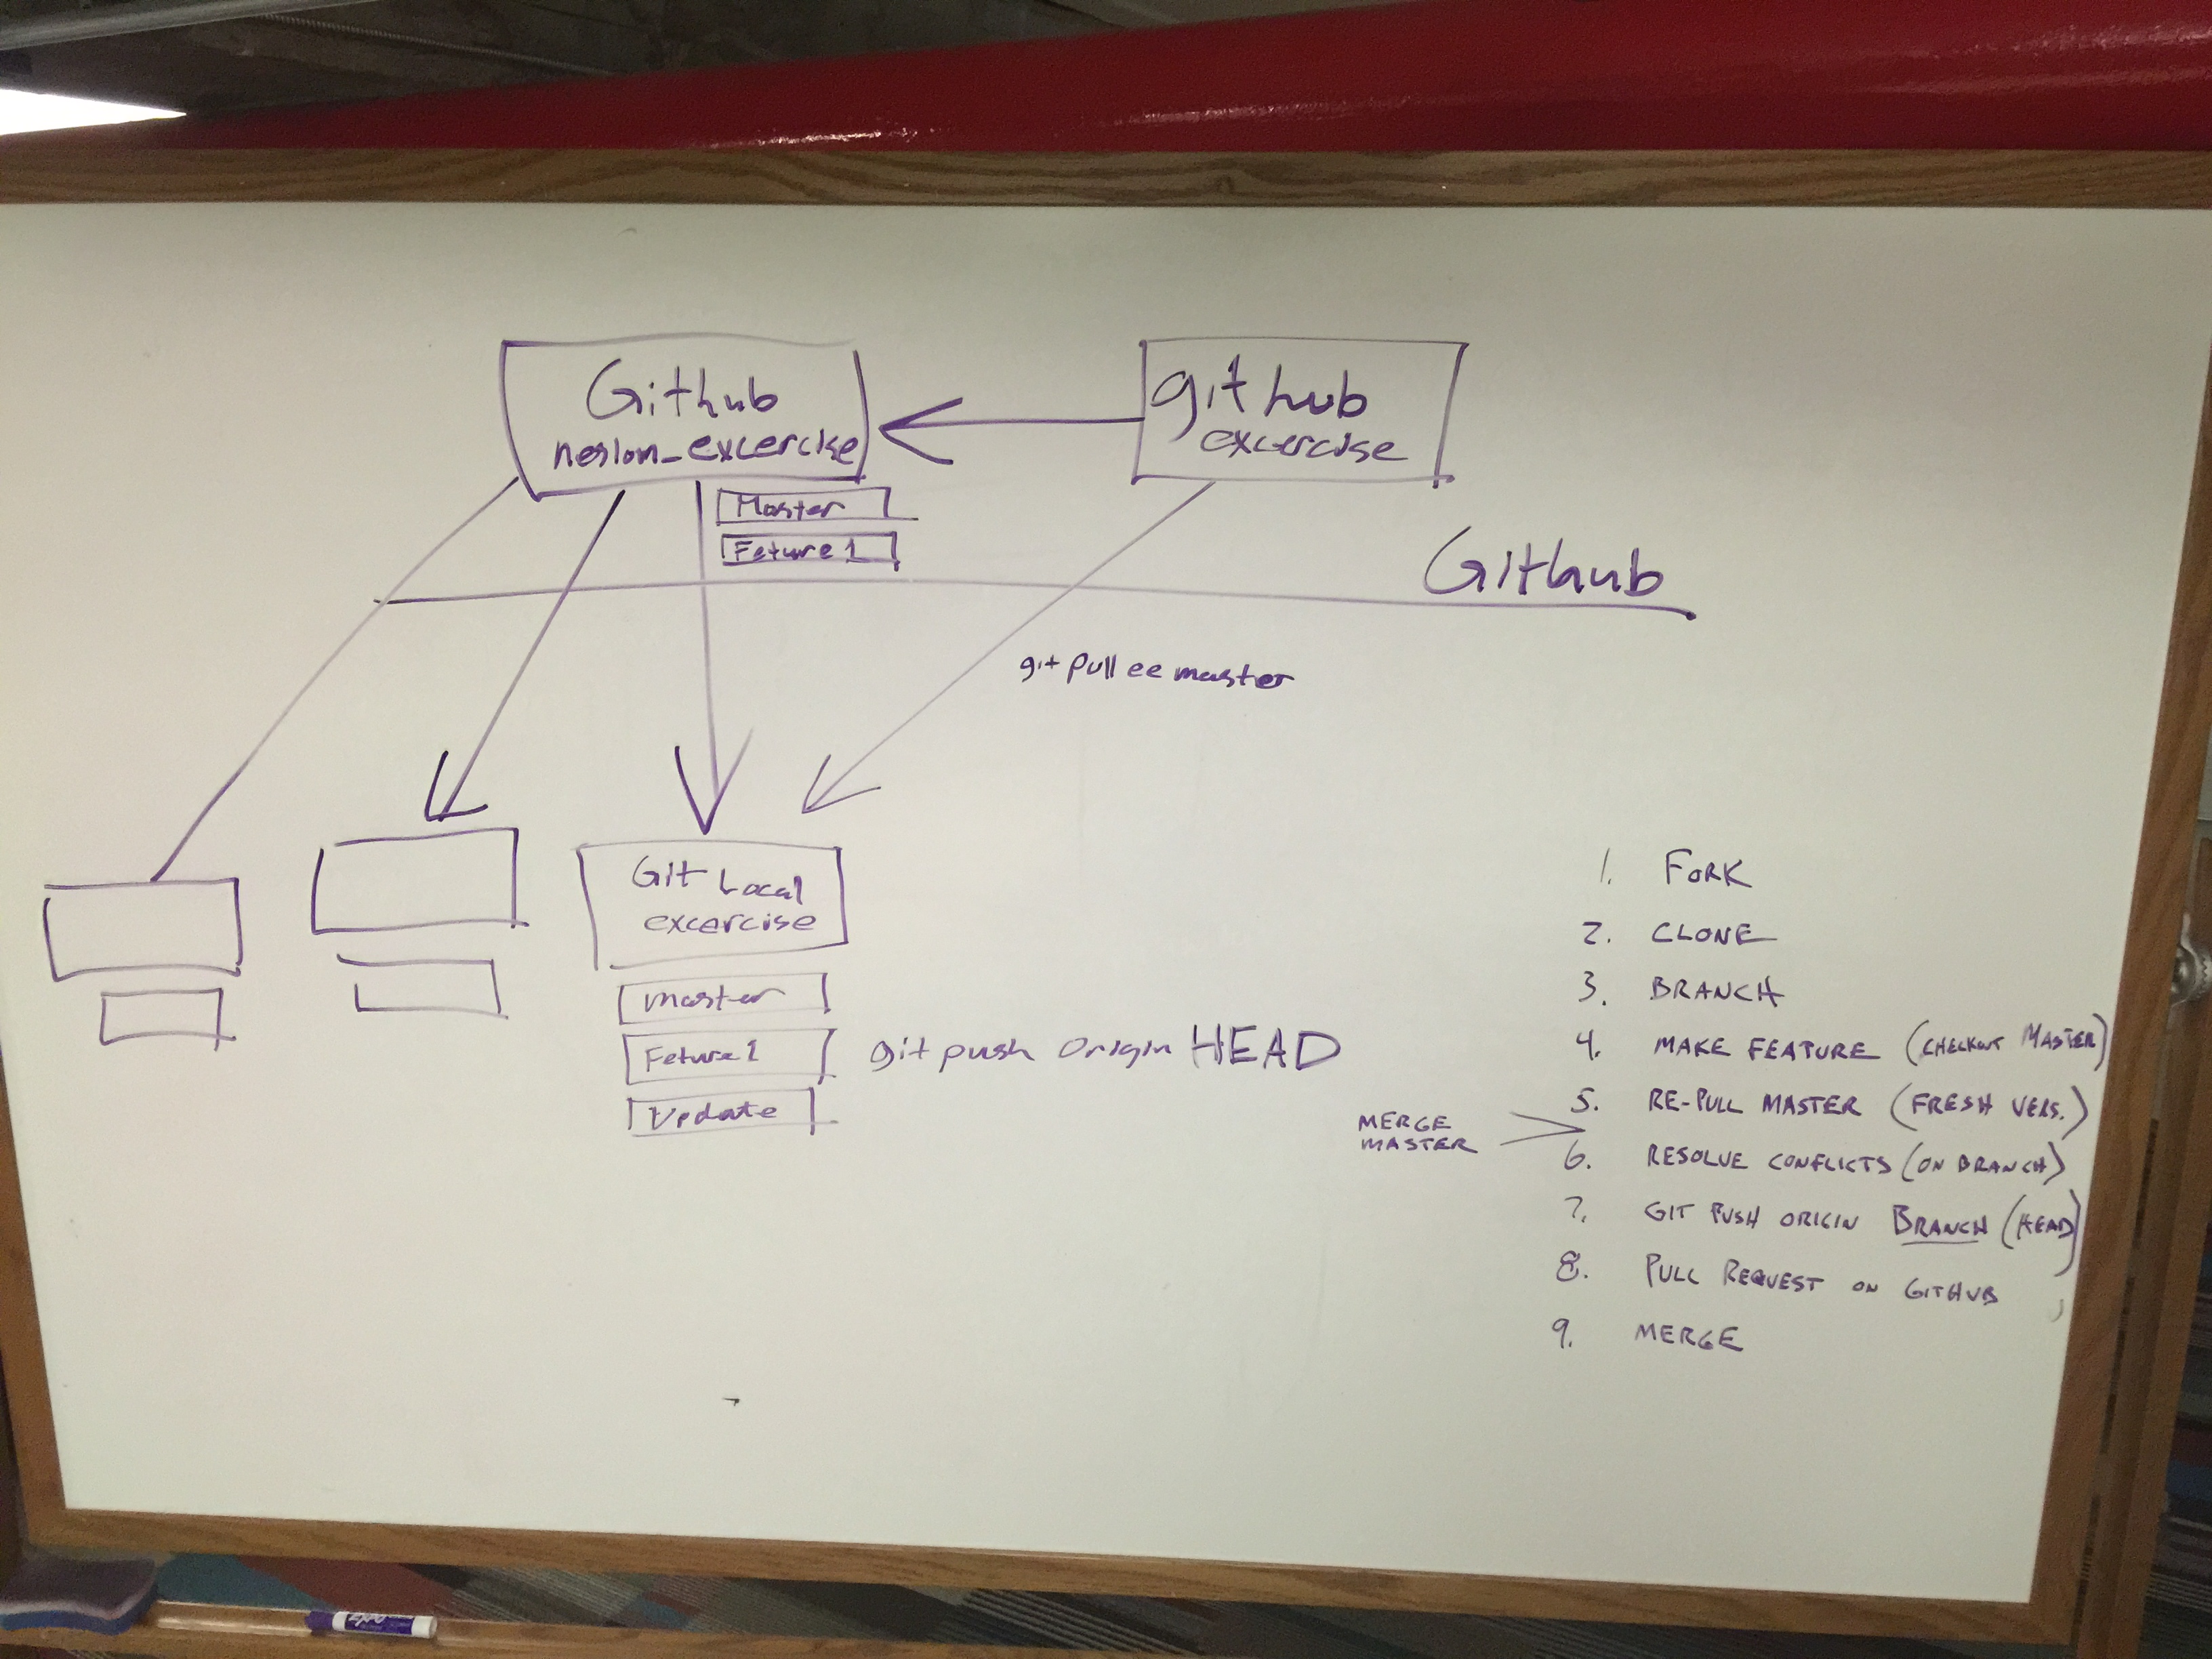 Github
neslon_excercise
github
excercise
Master
Feture 1
Github
git pull ee master
Git Local
excercise
master
Feture 1
Update
git push origin HEAD
1. FORK
2. CLONE
3. BRANCH
4. MAKE FEATURE (CHECKOUT MASTER)
5. RE-PULL MASTER (FRESH VERS.)
MERGE
MASTER
6. RESOLVE CONFLICTS (ON BRANCH)
7. GIT PUSH ORIGIN BRANCH (HEAD)
8. PULL REQUEST ON GITHUB
9. MERGE
EXPO